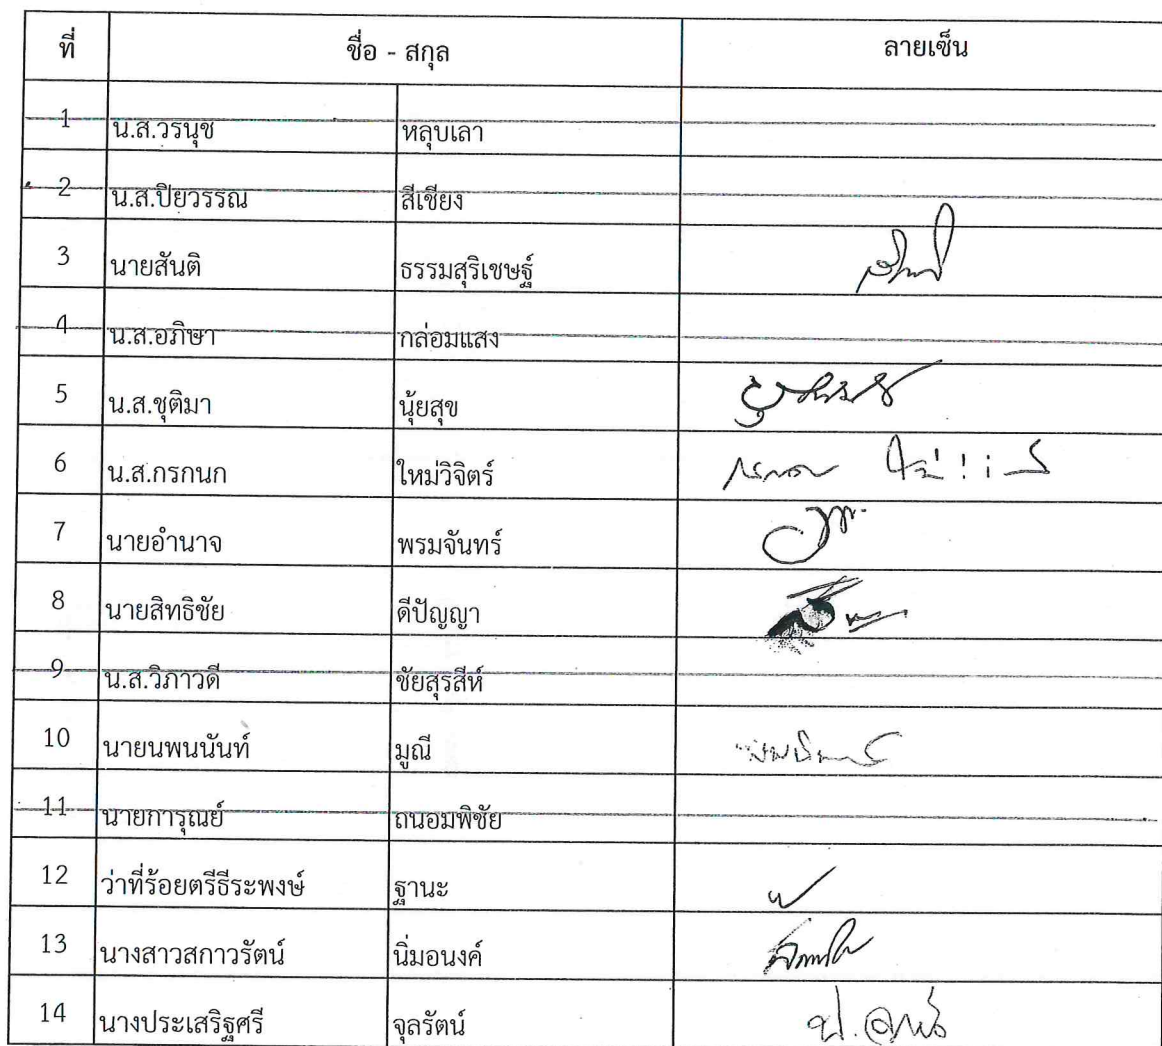 ที่ ชื่อ - สกุล ลายเซ็น
1 น.ส.วรนุช หลุบเลา
2 น.ส.ปิยวรรณ สีเชียง
3 นายสันติ ธรรมสุริเชษฐ์
4 น.ส.อภิษา กล่อมแสง
5 น.ส.ชุติมา นุ้ยสุข
6 น.ส.กรกนก ใหม่วิจิตร์
7 นายอำนาจ พรมจันทร์
8 นายสิทธิชัย ดีปัญญา
9 น.ส.วิภาวดี ชัยสุรสีห์
10 นายนพนนันท์ มูณี
11 นายการุณย์ ถนอมพิชัย
12 ว่าที่ร้อยตรีธีระพงษ์ ฐานะ
13 นางสาวสกาวรัตน์ นิ่มอนงค์
14 นางประเสริฐศรี จุลรัตน์